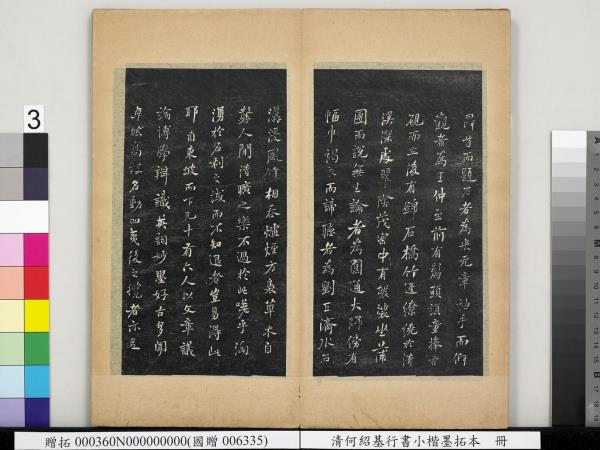 昂首而題石者為米元章袖手而仰
觀者為王仲至前有髯頭頑童捧古
硯而立後有錦石橋竹逕繚繞於清
溪深處翠陰茂密中有袈裟坐蒲
團而說無生論者為圓通大師傍有
幅巾褐衣而諦聽者為劉巨濟水石
潺湲風竹相吞爐煙方裊草木自
馨人間清曠之樂不過於此嗟乎洶
湧於名利之域而不知退者豈易得此
耶自東坡而下凡十有六人以文章議
論博學辯識英詞妙墨好古多聞
卓然高致名動四夷後之攬者亦足
3
贈拓 000360N000000000(國贈 006335)
清何紹基行書小楷墨拓本 冊